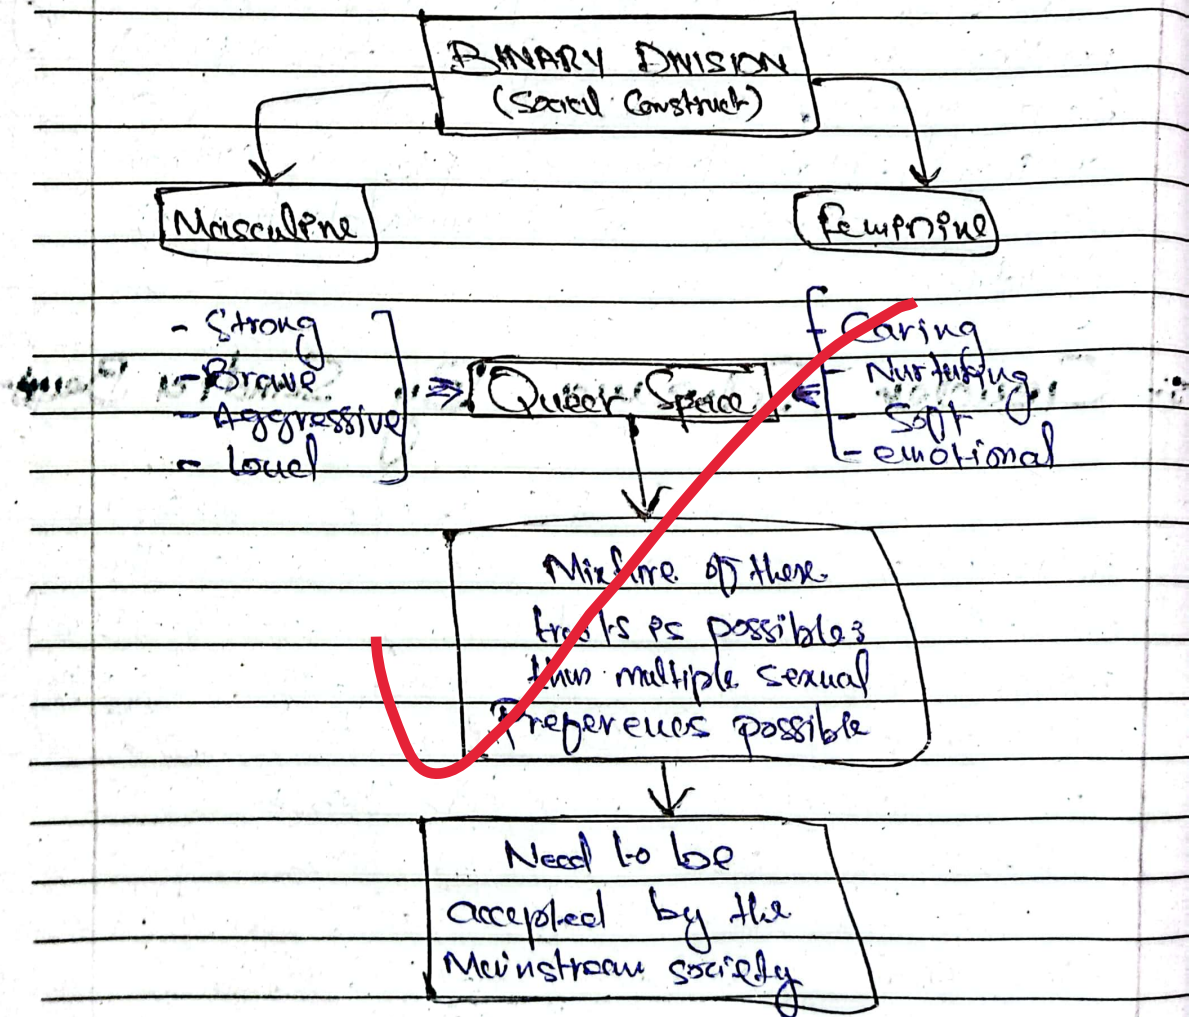 BINARY DIVISION
(Social Construct)
Masculine
Feminine
- Strong
- Brave
- Aggressive
- Loud
Queer Space
- Caring
- Nurturing
- Soft
- emotional
Mixture of these
traits is possible;
thus multiple sexual
Preferences possible
Need to be
accepted by the
Mainstream society